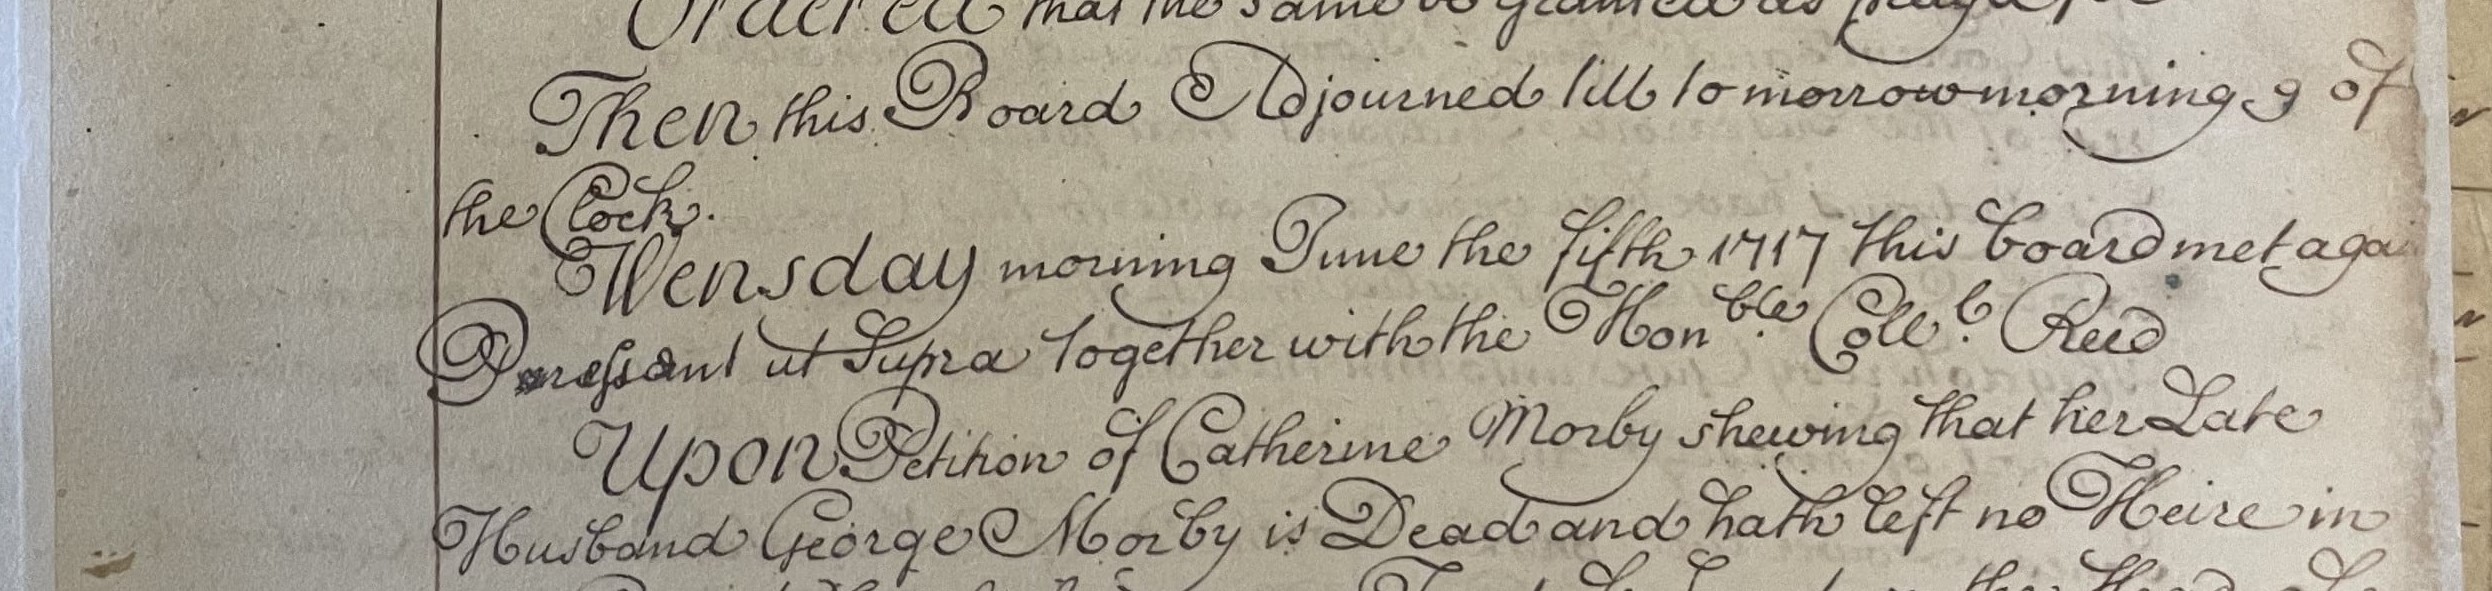 Ordered that the same be granted as pray'd
Then this Board Adjourned till to morrow morning 9 of
the Clock.
Wensday morning June the fifth 1717 this board met agai
Pressant ut Supra together with the Honble. Coll. Reed
Upon Petition of Catherine Morby shewing that her Late
Husband George Morby is Dead and hath left no Heire in